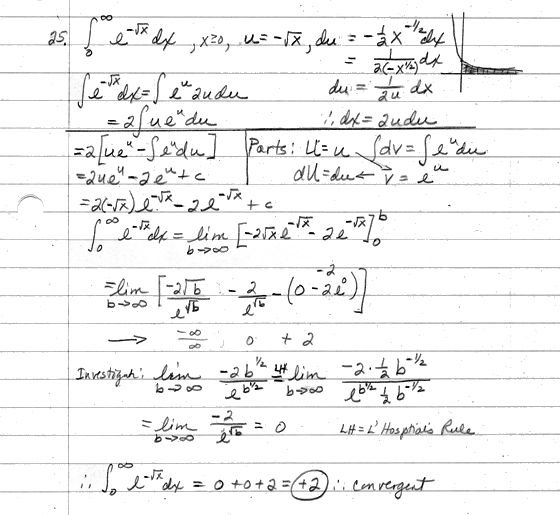 25. ∫₀^∞ e^(-√x) dx, x≥0, u = -√x, du = -½ x^(-1/2) dx
= 1/(2(-x^(1/2))) dx
∫e^(-√x) dx = ∫e^u 2u du
du = 1/(2u) dx
= 2∫u e^u du
∴ dx = 2u du
= 2[u e^u - ∫e^u du]
Parts: U = u ∫dv = ∫e^u du
= 2u e^u - 2e^u + c
dU = du ← v = e^u
= 2(-√x) e^(-√x) - 2e^(-√x) + c
∫₀^∞ e^(-√x) dx = lim b→∞ [-2√x e^(-√x) - 2e^(-√x)]₀^b
= lim b→∞ [-2√b/e^(√b) - 2/e^(√b) - (0 - 2e^0)] -2
→ -∞/∞ 0 + 2
Investigate: lim b→∞ -2b^(1/2)/e^(b^(1/2)) LH= lim b→∞ (-2·½ b^(-1/2))/(e^(b^(1/2)) ½ b^(-1/2))
= lim b→∞ -2/e^(√b) = 0 LH = L'Hospital's Rule
∴ ∫₀^∞ e^(-√x) dx = 0 + 0 + 2 = +2 ∴ convergent